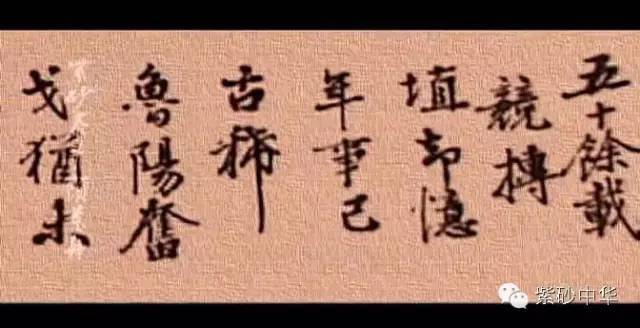 五十餘載
競摶
埴却憶
年事已
古稀
魯陽奮
戈猶未
紫砂中华